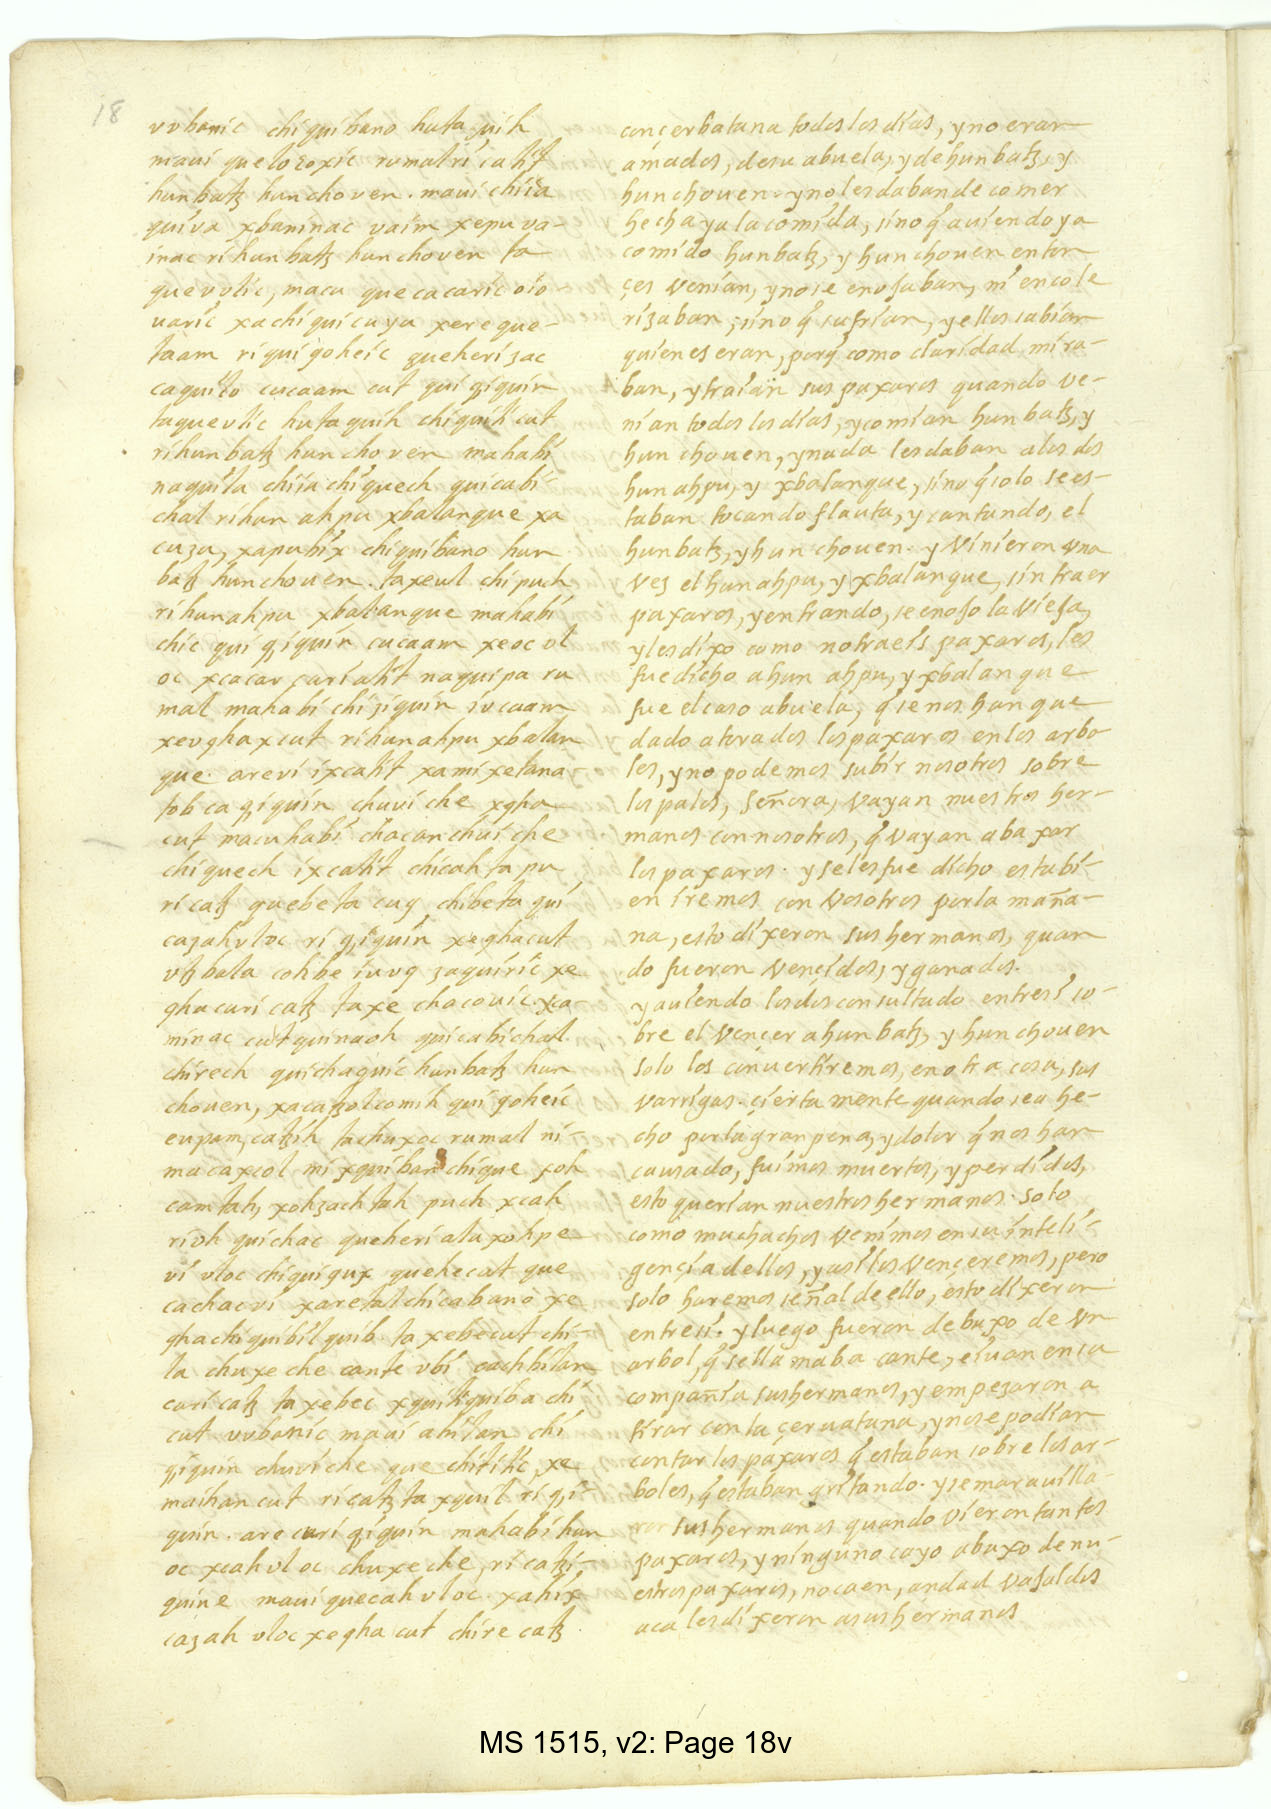 18
vvbanic chi quibano huta quih
maui que lo3oxic rumal ri catit
hunbatz hunchoven. maui chiia
quiva xbaninac vaim xepu va-
inac ri hunbatz hunchoven ta
que vlic, macu que cacaric oio
uaric xa chi qui cuyu xere que-
taam ri qui qoheic queheri zac
caquito cucaam cut qui qiquin
taque vlic huta quih chiquiti cut
ri hunbatz hunchoven mahabi
naquila chiia chiquech quicabi-
chal ri hun ahpu xbalanque xa
cuzu, xapubix chiquibano hun
batz hunchouen. taxeul chi puch
ri hunahpu xbalanque mahabi
chic qui qiquin cucaam xeoc vl
oc xcacar cari atit naquipa ru
mal mahabi chi ziquin iucaam
xevqhaxcut ri hunahpu xbalan
que. areví ixcatit xamixetana-
tob ca qiquin chuui che xqha
cut macuhabi chacan chui che
chiquech ixcatit chicah ta pu
ri catz quebeta cuq chibeta qui
cazah vloc ri qiquin xeqhacut
vtzbala cohbe iuvq zaquiric xe
qhacuri catz taxe chacouic. xca-
minac cut quinaoh quicabichal.
chirech quichaquic hunbatz hun
chouen, xacatzolcomih qui qoheic
eupam, catzih tachuxoc rumal ni-
ma caxcol mi xquiban chique xoh
camtah, xohzachtah puch xcah
ri oh quichac queheri ala xohpe
vi vloc chiquiqux quehecut que
cachacvi xaretal chicabano xe
qhachiquibil quib. ta xebecut chi-
la chuxe che cante vbi cachbilan
cari catz ta xebec xquitiquiba chi
cut vvbanic maui ahilan chi
qiquin chuvi che que chititic, xe
maihan cut ri catz ta xquil ri qi-
quin. are curi qiquin mahabi hun
oc xcah vloc chuxe che, ri catzi-
quin e maui quecah vloc. xahix
cazah vloc xeqha cut chire catz.
con çerbatana todos los dias, y no eran
amados, de su abuela, y de hunbatz, y
hunchouen. y no les daban de comer
hecha ya la comida, sino q̃ auiendo ya
comido hunbatz, y hunchouen enton
çes venian, y no se enojaban, ni encole
rizaban; sino q̃ sufrian, y ellos sabian
quienes eran, porq̃ como claridad mira-
ban, y traian sus paxaros quando ve-
nian todos los dias, y comian hun batz, y
hun chouen, y nada les daban a los dos
hun ahpu, y xbalanque, sino q̃ solo se es-
taban tocando flauta, y cantando, el
hunbatz, y hun chouen. y vinieron vna
vez el hunahpu, y xbalanque, sin traer
paxaros, y entrando, se enojo la vieja,
y les dixo como no traeis paxaros, les
fue dicho a hun ahpu, y xbalanque
fue el caso abuela, q̃ se nos han que
dado atorados los paxaros en los arbo-
les, y no podemos subir nosotros sobre
los palos, señora, vayan nuestros her-
manos con nosotros, q̃ vayan a baxar
los paxaros. y seles fue dicho esta bi-
en iremos con vosotros por la maña-
na, esto dixeron sus hermanos, quan
do fueron vençidos, y ganados.
y auiendo los dos consultado entre si so-
bre el vençer a hun batz, y hun chouen
solo los conuertiremos, en otra cosa, sus
varrigas. çiertamente quando sea he-
cho por la gran pena, y dolor q̃ nos han
causado, fuimos muertos, y perdidos,
esto querian nuestros hermanos. solo
como muchachos venimos en su inteli-
gençia dellos, y asi los vençeremos, pero
solo haremos señal de ello, esto dixeron
entre si. y luego fueron debaxo de vn
arbol, q̃ se llamaba cante, e iuan en su
compañia sus hermanos, y empezaron a
tirar con la çeruatana, y no se podian
contar los paxaros q̃ estaban sobre los ar-
boles, q̃ estaban gritando. y se marauilla-
ron sus hermanos quando vieron tantos
paxaros, y ninguno cayo abaxo de nu-
estros paxaros, no caen, andad vajaldos
aca les dixeron a sus hermanos
MS 1515, v2: Page 18v